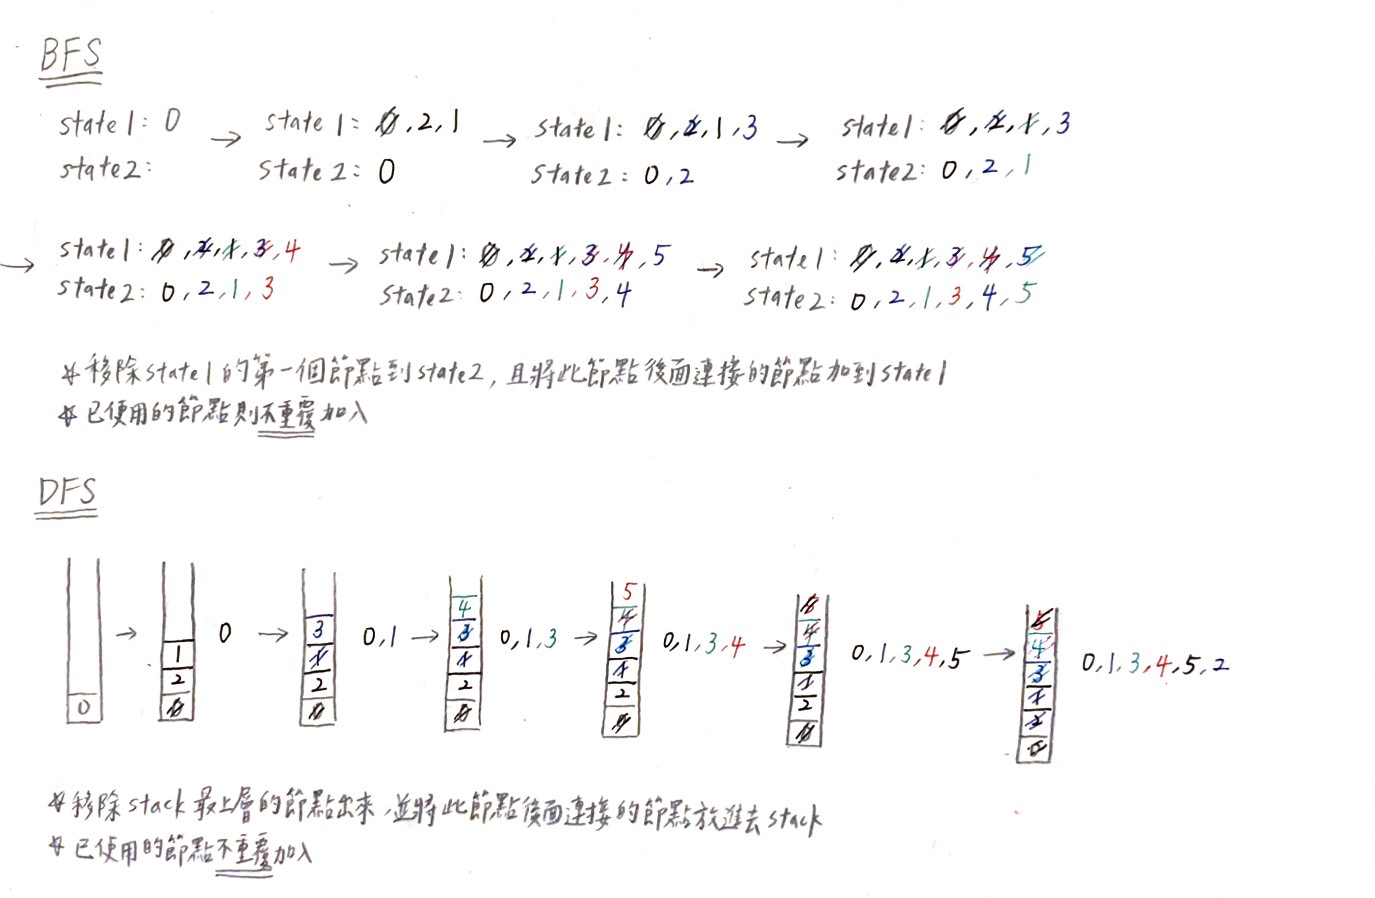 BFS
state1: 0 → state1: 0,2,1 → state1: 0,2,1,3 → state1: 0,2,1,3
state2: state2: 0 state2: 0,2 state2: 0,2,1
→ state1: 0,2,1,3,4 → state1: 0,2,1,3,4,5 → state1: 0,2,1,3,4,5
state2: 0,2,1,3 state2: 0,2,1,3,4 state2: 0,2,1,3,4,5
* 移除state1的第一個節點到state2,且將此節點後面連接的節點加到state1
* 已使用的節點則不重覆加入
DFS
5
4 4 4 4
3 3 3 3 3
1 1 1 1 1 1
2 2 2 2 2 2
0 0 0 0 0 0 0
→ 0 → 0,1 → 0,1,3 → 0,1,3,4 → 0,1,3,4,5 → 0,1,3,4,5,2
* 移除stack最上層的節點出來,並將此節點後面連接的節點放進去stack
* 已使用的節點不重覆加入